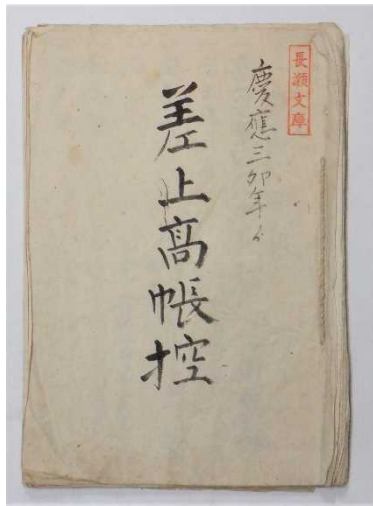 長瀬文庫
慶應三卯年ゟ
差上髙帳控